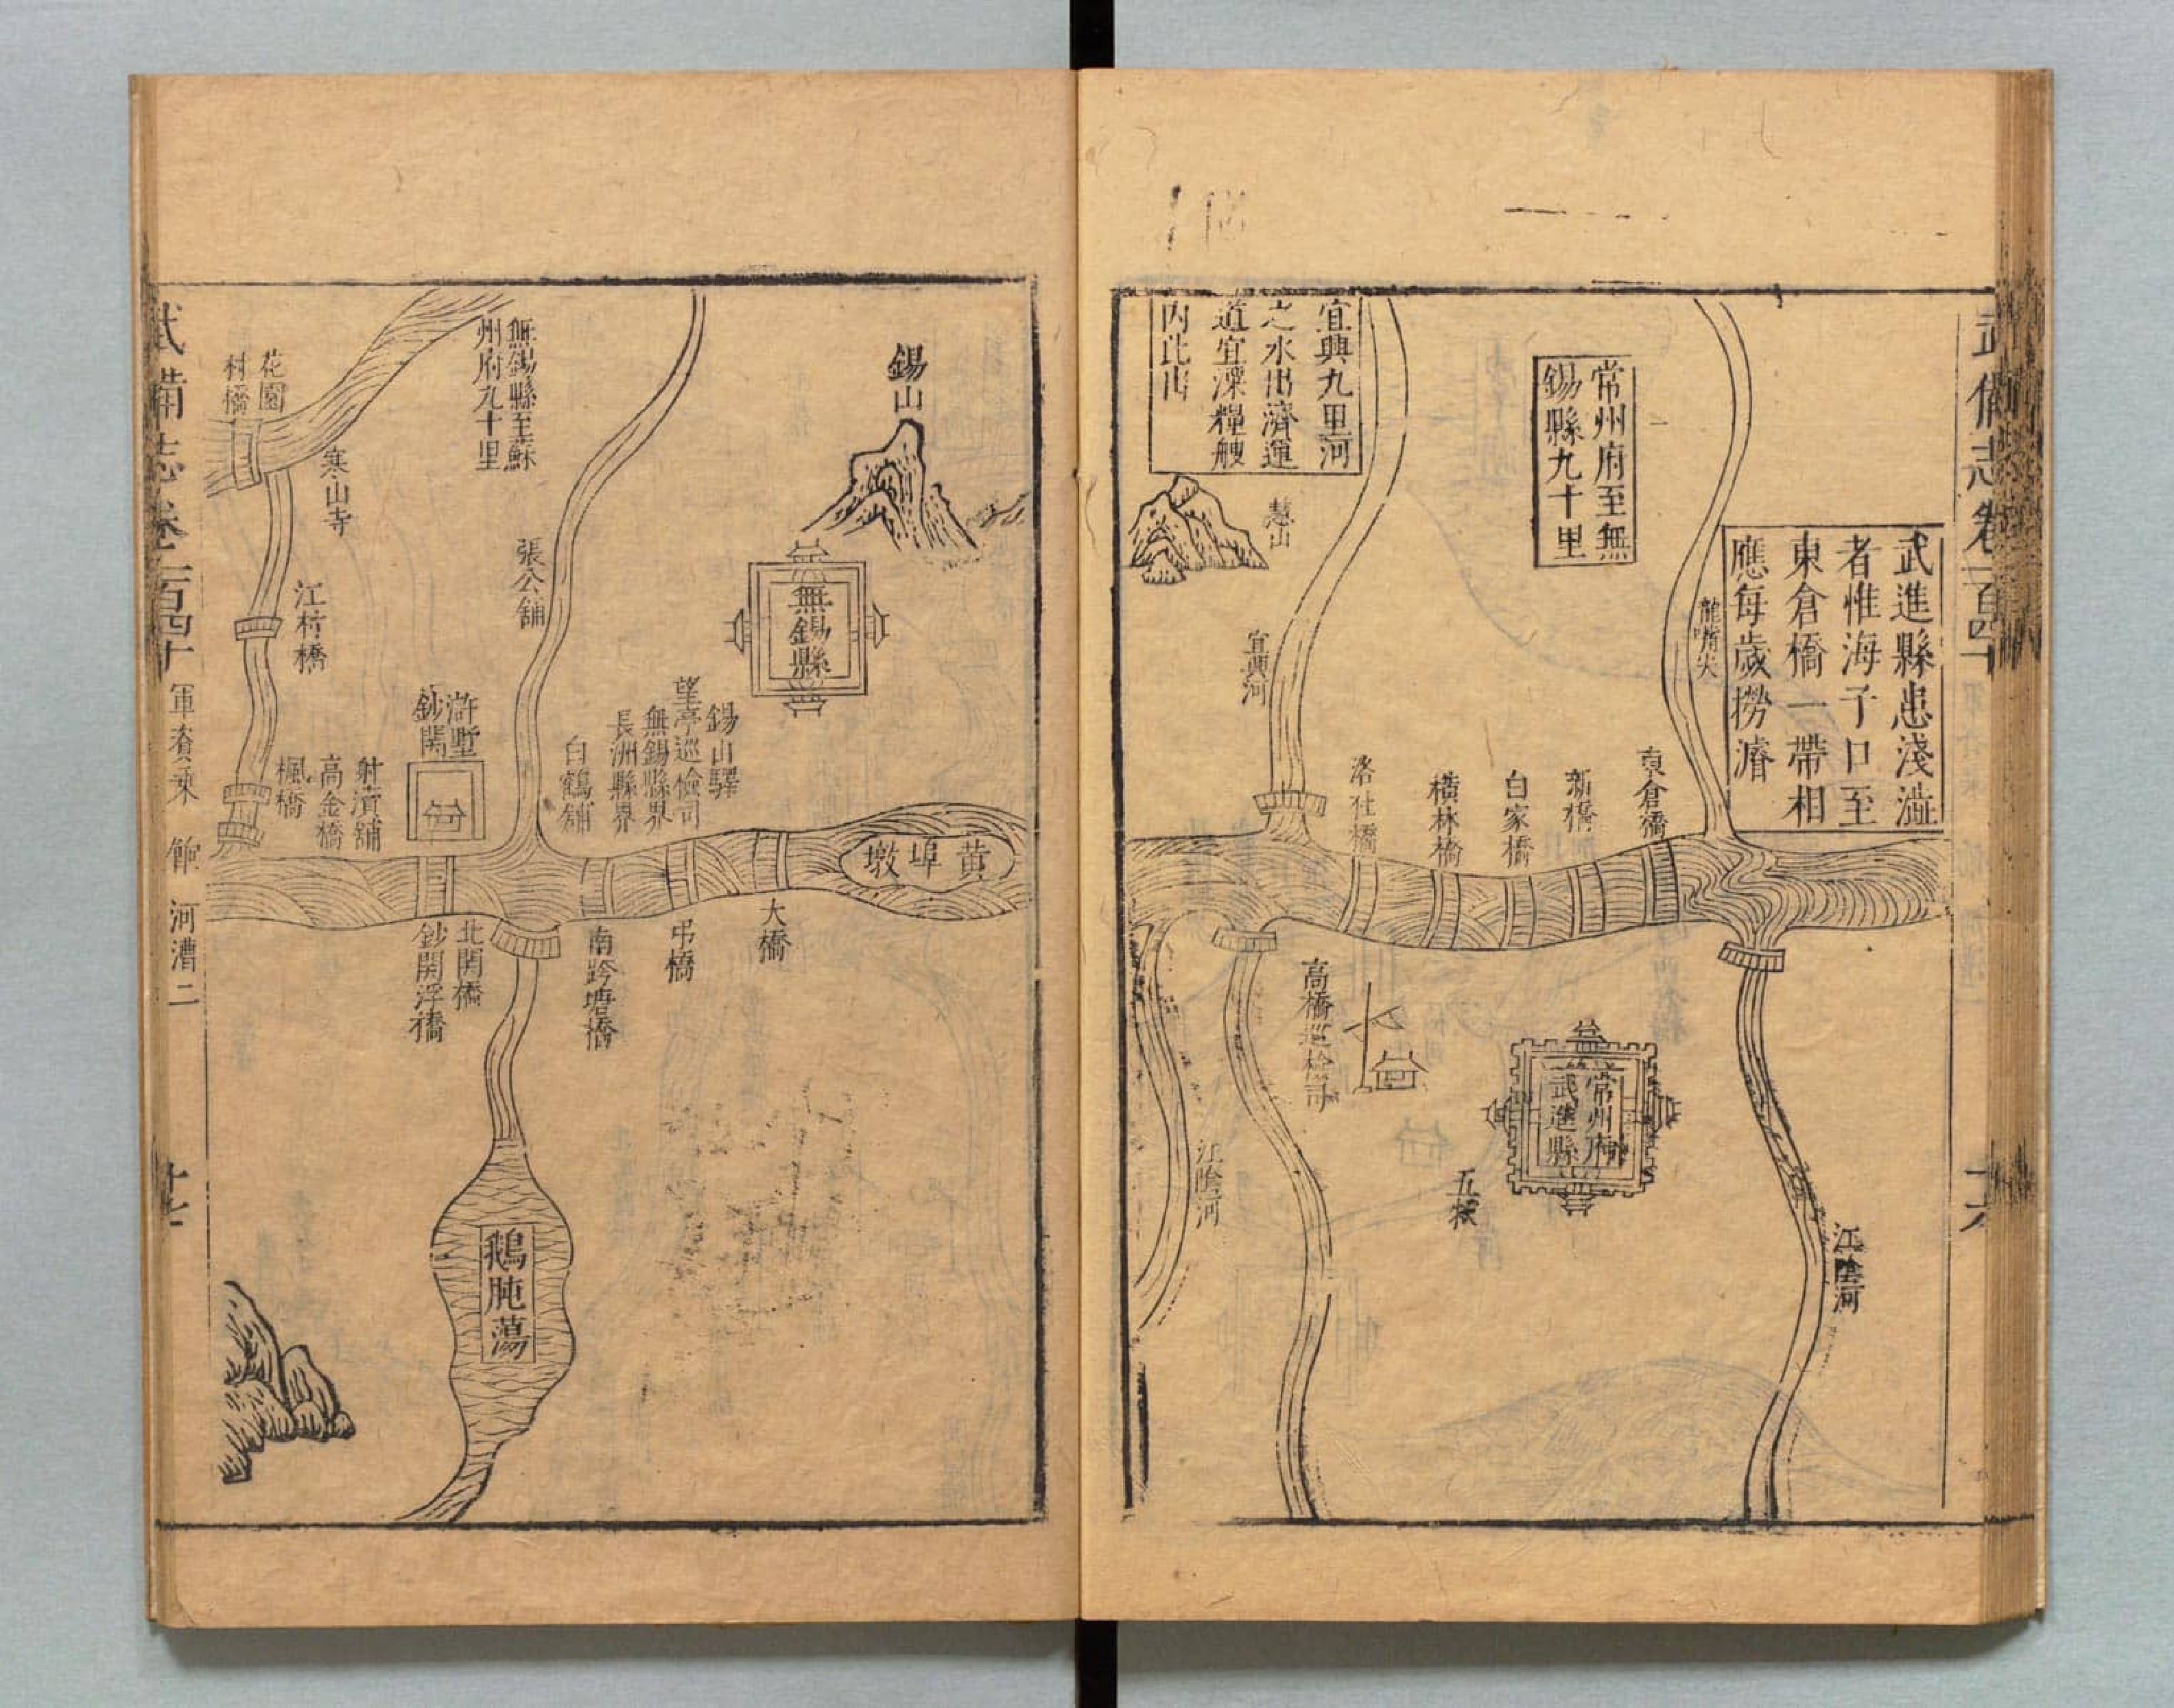 武備志卷一百四十
十六
武進縣患淺澁
者惟海子口至
東倉橋一帶相
應每歲撈濬
龍嘴尖
常州府至無
錫縣九十里
宜興九里河
之水出濟運
道宜溧糧艘
內此出
慧山
宜興河
東倉橋
新橋
白家橋
橫林橋
洛社橋
高橋巡檢司
常州府
武進縣
五牧
江陰河
江陰河
錫山
無錫縣
黃埠墩
錫山驛
望亭巡檢司
無錫縣界
長洲縣界
白鶴舖
大橋
弔橋
南跨塘橋
無錫縣至蘇
州府九十里
張公舖
滸墅
鈔関
北関橋
鈔関浮橋
射瀆舖
高金橋
楓橋
江村橋
寒山寺
花園
村橋
鵝肫蕩
武備志卷一百四十 軍資乘 餉 河漕二
十七